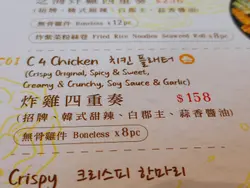 $258
(招牌、韓式甜辣、白郡主、蒜香醬油)
無骨雞件 Boneless x12pc
炸紫菜粉絲卷 Fried Rice Noodles Seaweed Roll
C01 C4 Chicken 치킨 플래터
(Crispy Original, Spicy & Sweet,
Creamy & Crunchy, Soy Sauce & Garlic)
炸雞四重奏 $158
(招牌、韓式甜辣、白郡主、蒜香醬油)
無骨雞件 Boneless x8pc
Crispy 크리스피 한마리